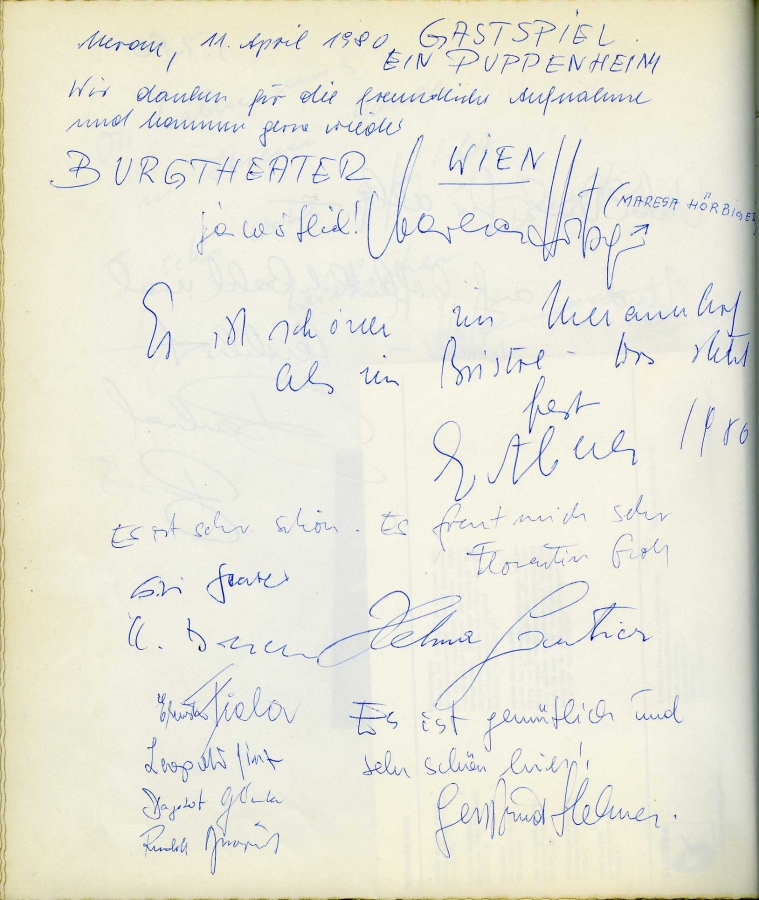 Meran, 11. April 1980 GASTSPIEL
EIN PUPPENHEIM
Wir danken für die freundliche Aufnahme
und kommen gerne wieder
BURGTHEATER WIEN
jawohl! (MARESA HÖRBIGER
Es ist schöner im Meranerhof
als im Bristol - das steht
fest
1980
Es ist sehr schön. Es freut mich sehr
Florentin Groll
Helma Gautier
Fiala
Leopold
Es ist gemütlich und
sehr schön hier!
Dagobert
Rudolf
Gertraud Helmer.